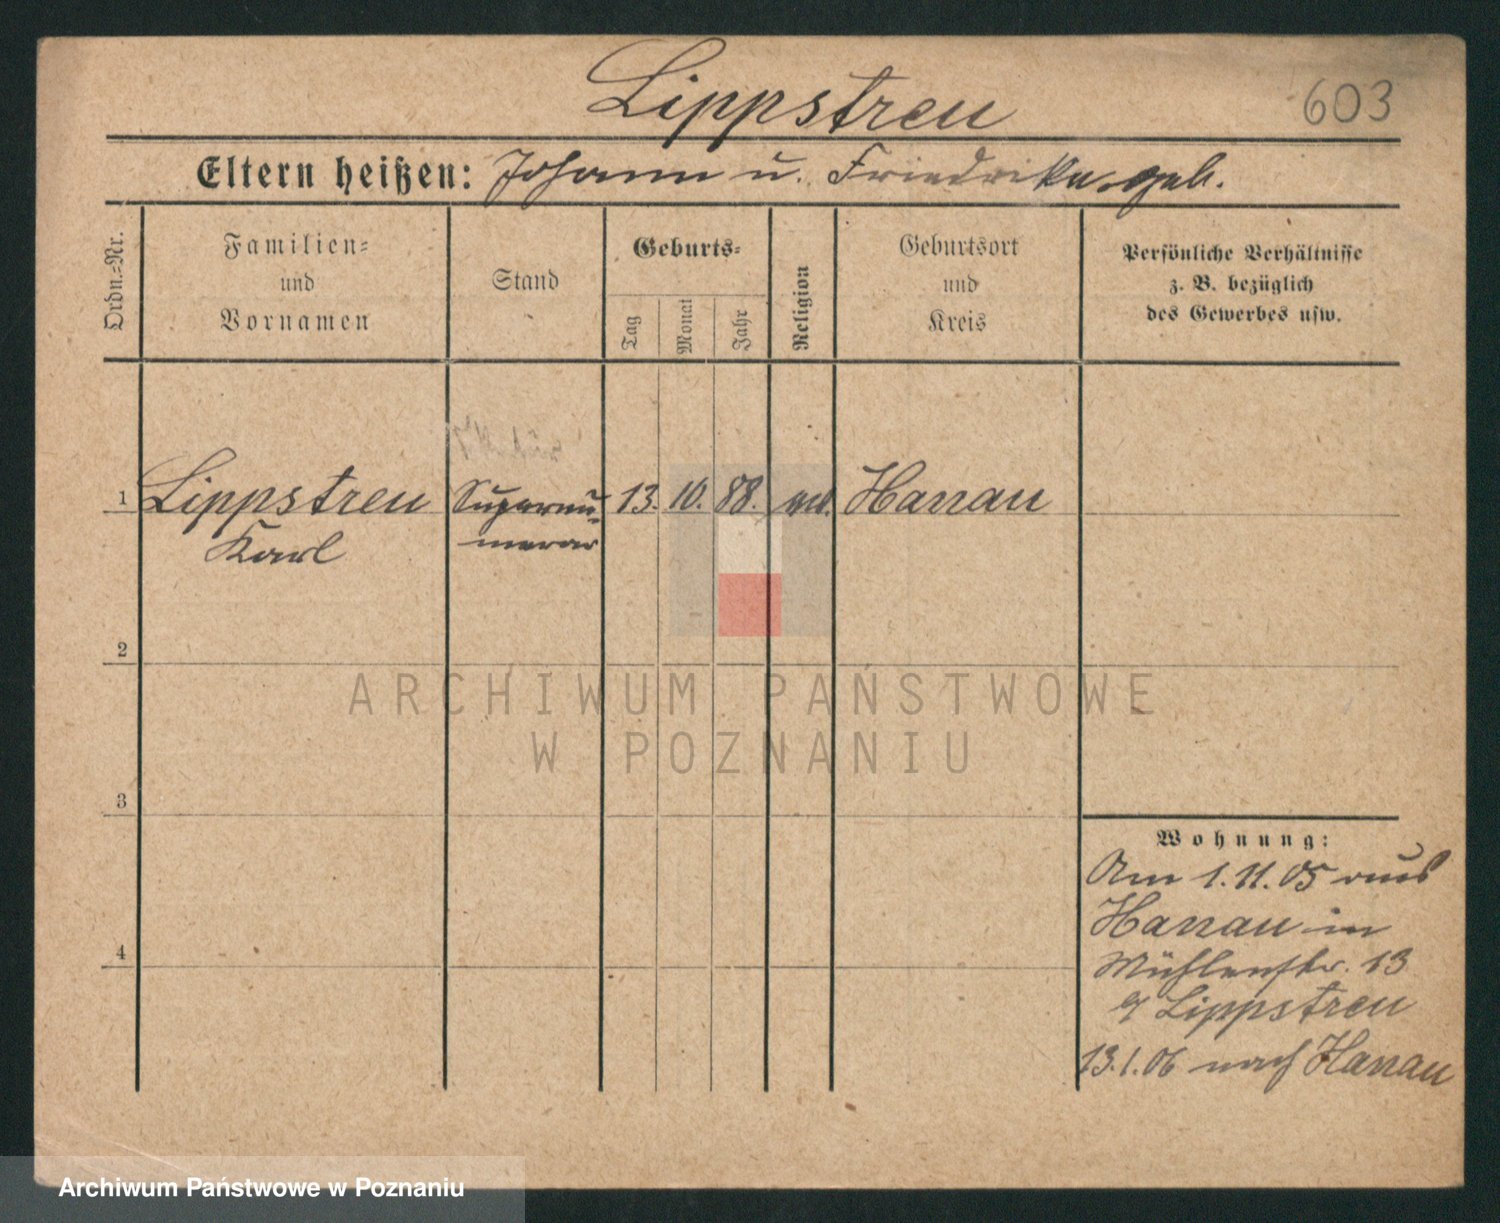 Lippstreu
603
Eltern heißen: Johann u. Friedrike geb.
Ordn.=Nr.
Familien=
und
Vornamen
Stand
Geburts=
Tag
Monat
Jahr
Religion
Geburtsort
und
Kreis
Persönliche Verhältnisse
z. B. bezüglich
des Gewerbes usw.
1 Lippstreu Supernu= 13. 10. 88. Hanau
Karl merar
2
3
4
Wohnung:
Am 1.11.05 aus
Hanau in
Mühlenstr. 13
Lippstreu
13.1.06 nach Hanau
ARCHIWUM PAŃSTWOWE
W POZNANIU
Archiwum Państwowe w Poznaniu